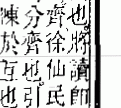 也將讀師
齊徐仙民
分齊也引
陳於互也